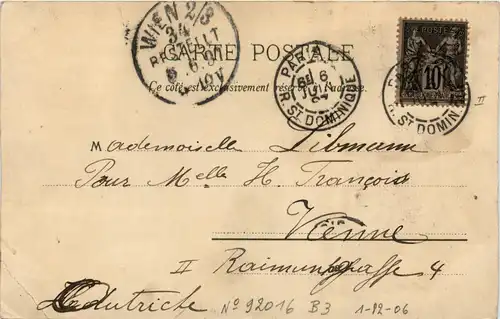 WIEN 2/3
BESTELLT
CARTE POSTALE
Ce côté est exclusivement réservé à l'adresse
PARIS
6
R. ST DOMINIQUE
POSTES
10
R. ST DOMIN
II
Mademoiselle Libmann
Pour Melle H. François
Vienne
II Raimundgasse 4
Autriche
No 92016 B3 1-12-06